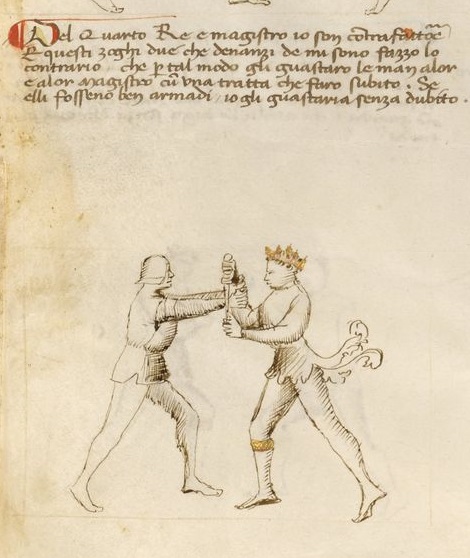 Del Quarto Re e magistro io son cōtrafattoē
E questi zoghi due che denanzi de mi sono fazzo lo
contrario . che p tal modo gli guastaro le man alor
e alor Magistro cū una tratta che faro subito . Se
elli fosseno ben armadi / io gli guastaria senza dubito .